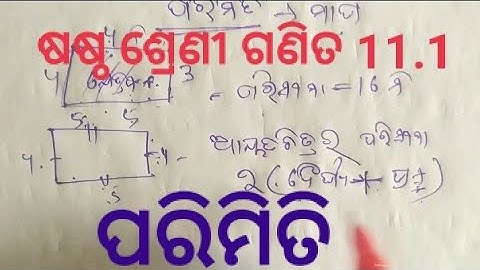 ପରିମିତି → ମାପ
ଷଷ୍ଠ ଶ୍ରେଣୀ ଗଣିତ 11.1
4
4
3
5
- ପରିସୀମା = 16
5
5
4
4 -
5
ଆୟତଚିତ୍ରର ପରିସୀମା
2 (ଦୈର୍ଘ୍ୟ + ପ୍ରସ୍ଥ)
ପରିମିତି